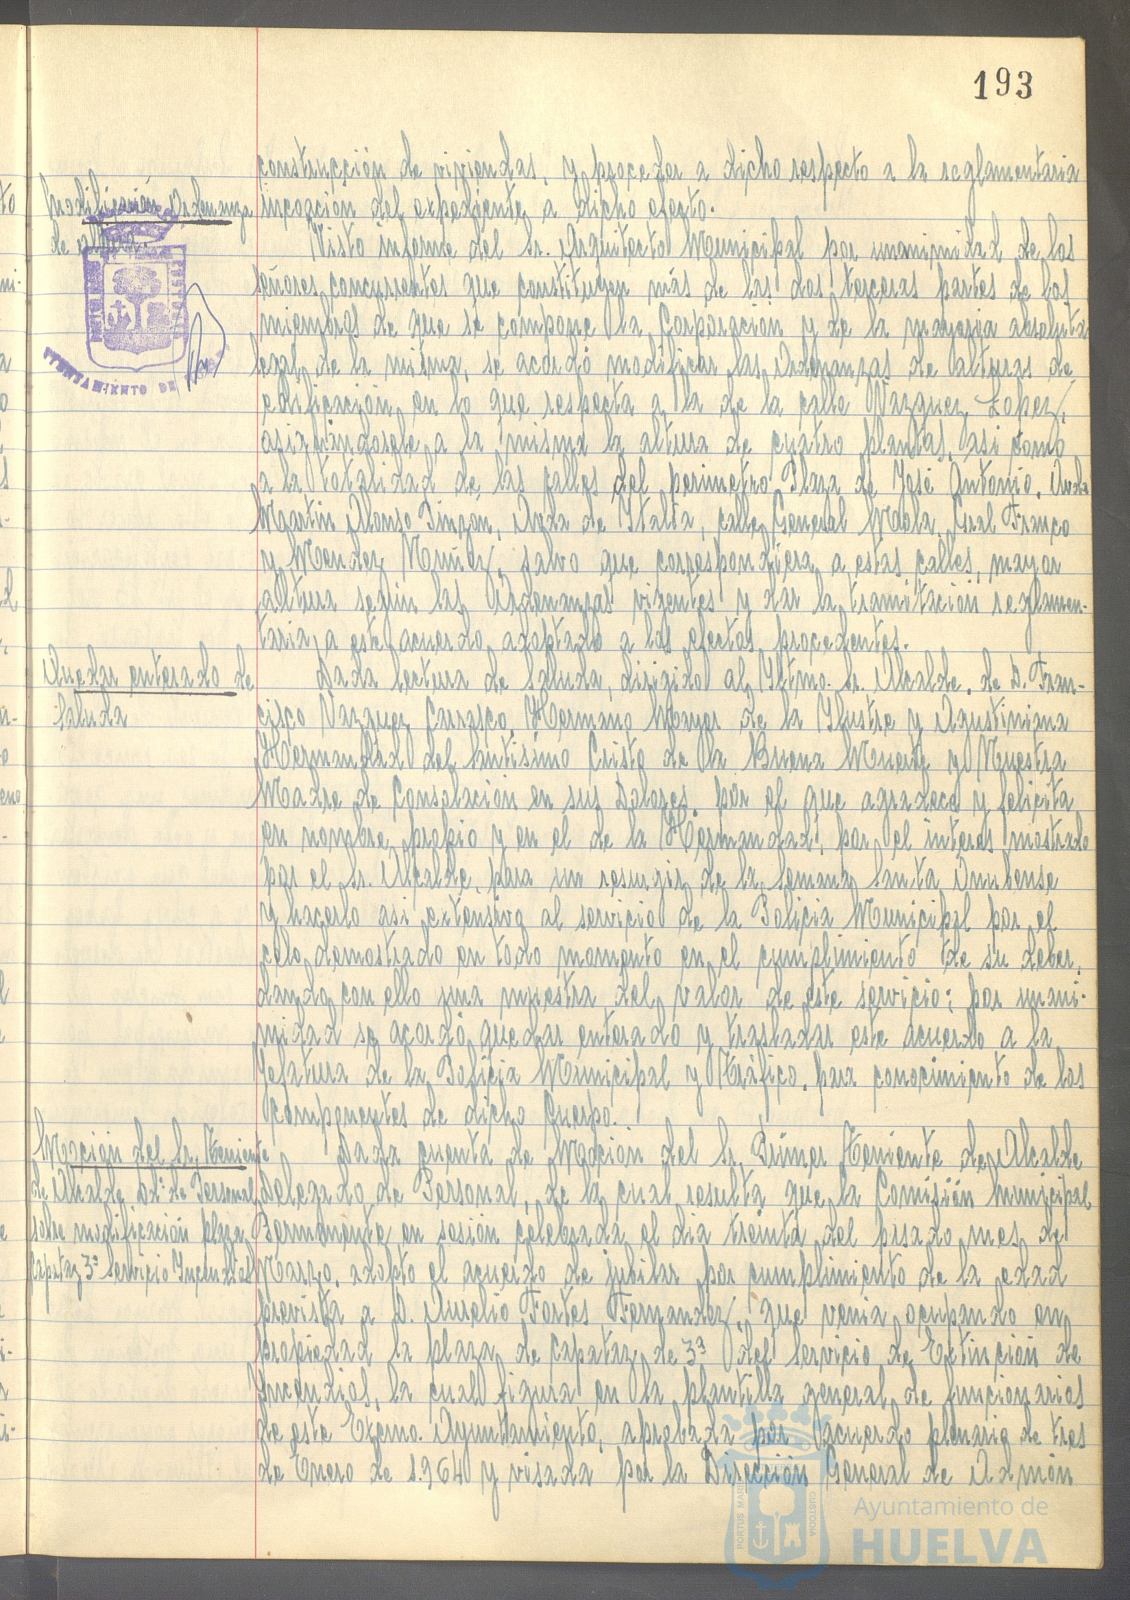 193
construcción de viviendas, y proceder a dicho respecto a la reglamentaria
incoación del expediente a dicho efecto.
Modificación Ordenanza
de
Visto informe del Sr. Arquitecto Municipal por unanimidad de los
señores concurrentes que constituyen más de las dos terceras partes de los
miembros de que se compone la Corporación y de la mayoria absoluta
legal de la misma, se acordó modificar las Ordenanzas de alturas de
edificación en lo que respecta a la de la calle Vazquez Lopez,
asignandosele a la misma la altura de cuatro plantas, asi como
a la totalidad de las calles del perimetro Plaza de José Antonio, Avda
Martin Alonso Pinzón, Avda de Italia, calle General Mola, Gral Franco
y Mendez Nuñez, salvo que correspondiera a estas calles, mayor
altura según las Ordenanzas vigentes y dar la tramitación reglamen-
taria, a este acuerdo adoptado a los efectos procedentes.
AYUNTAMIENTO DE
Quedar enterado de
Saluda
Dada lectura de Saluda, dirigido al Iltmo. Sr. Alcalde, de D. Fran-
cisco Vazquez Carrasco, Hermano Mayor de la Ilustre y Agustiniana
Hermandad del Santisimo Cristo de la Buena Muerte y Nuestra
Madre de Consolación en sus Dolores, por el que agradece y felicita
en nombre propio y en el de la Hermandad, por el interes mostrado
por el Sr. Alcalde, para un resurgir de la Semana Santa Onubense
y hacerlo asi extensivo al servicio de la Policia Municipal por el
celo demostrado en todo momento en el cumplimiento de su deber,
dando con ello una muestra del valor de este servicio; por unani-
midad se acordó quedar enterado y trasladar este acuerdo a la
Jefatura de la Policia Municipal y Tráfico, para conocimiento de los
componentes de dicho Cuerpo.
Moción del Sr. Teniente
de Alcalde Dº de Personal
sobre modificación plaza
Capataz 3ª Servicio Incendios
Dada cuenta de Moción del Sr. Primer Teniente de Alcalde
Delegado de Personal, de la cual resulta que la Comisión Municipal
Permanente en sesión celebrada el dia treinta del pasado mes de
Marzo, adopto el acuerdo de jubilar por cumplimiento de la edad
prevista a D. Aurelio Fortes Fernandez, que venia ocupando en
propiedad la plaza de Capataz de 3ª del Servicio de Extinción de
Incendios, la cual figura en la plantilla general de funcionarios
de este Excmo. Ayuntamiento, aprobada por acuerdo plenario de tres
de Enero de 1.964 y visada por la Dirección General de Admón
PORTUS MARIS CUSTODIA
Ayuntamiento de
HUELVA